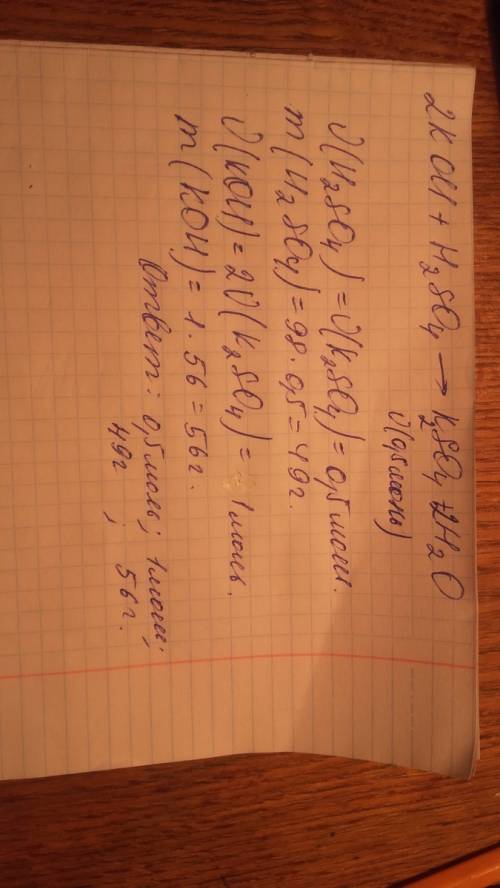 2KOH + H₂SO₄ → K₂SO₄ + 2H₂O
ν(0,5моль)
ν(H₂SO₄) = ν(K₂SO₄) = 0,5моль.
m(H₂SO₄) = 98·0,5 = 49г.
ν(KOH) = 2ν(K₂SO₄) = 1моль.
m(KOH) = 1·56 = 56г.
Ответ: 0,5моль; 1моль;
49г ; 56г.